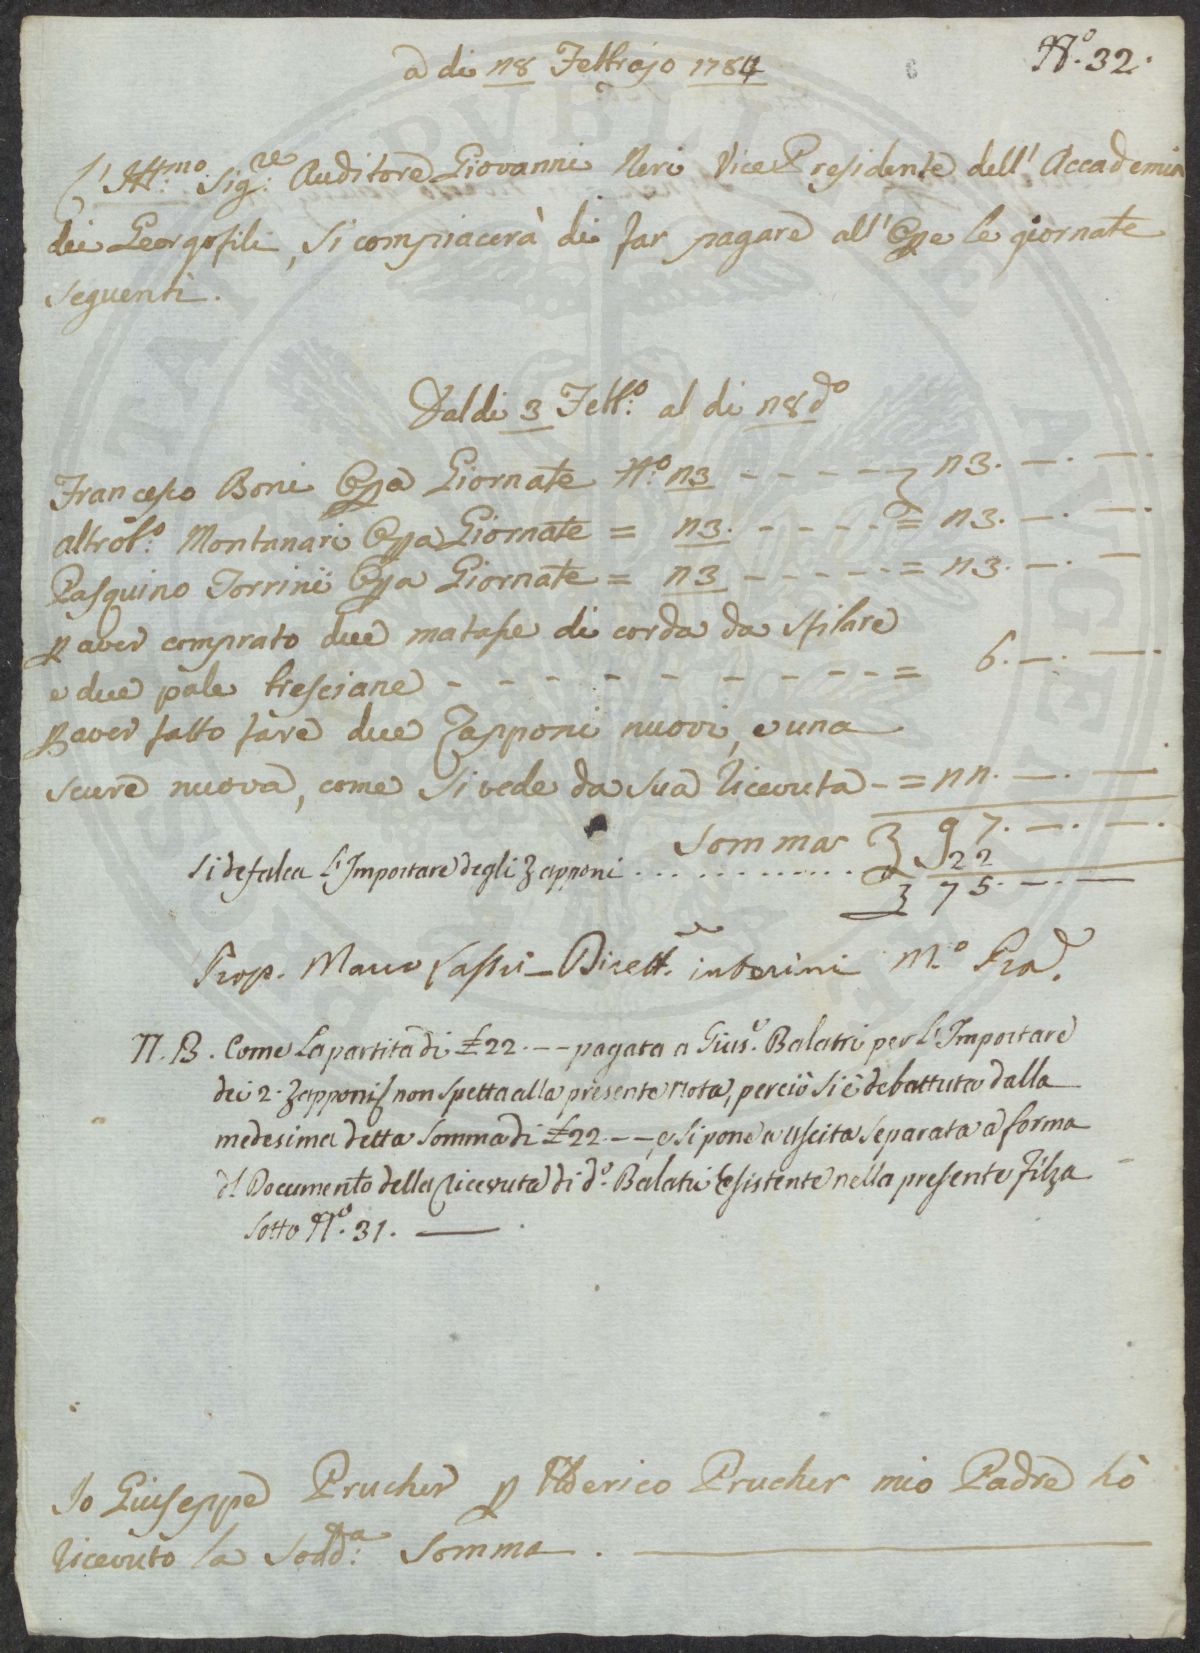 a di 18 Febbrajo 1784
N.º 32.
L'Ill:mo Sig:re Auditore Giovanni Neri Vice Presidente dell' Accademia
dei Georgofili, si compiacerà di far pagare all' Opre le giornate
seguenti.
Dal di 3 Febb:º al di 18 dº
Francesco Boni Opra Giornate N:º 13 - - - - - 13. —. —.
Montanari Opra Giornate = 13. - - - - = 13. —. —.
Pasquino Torrini Opra Giornate = 13 - - - - - = 13. —. —
p aver comprato due matasse di corda da spilare
e due pale bresciane - - - - - - - - - - = 6. —. —.
p aver fatto fare due Zapponi nuovi, e una
scure nuova, come si vede da sua ricevuta - =
Somma 97. —. —.
Si defalca l'Importare degli Zapponi . . . . . . . . . . . . 22
75. —. —
Prop. Marco Lastri Dirett:re interino M.º Prod.
N. B. Come la partita di £ 22. — — pagata a Gius.e Balatri per l'Importare
dei 2. Zapponi non spetta alla presente Nota, perciò si è debattuta dalla
medesima detta Somma di £ 22. — —, e si pone a uscita separata a forma
d! Documento della ricevuta di d.º Balatri esistente nella presente filza
sotto N.º 31. —
Io Giuseppe Prucher p Uderico Prucher mio Padre hò
ricevuto la Sodd:a Somma . —